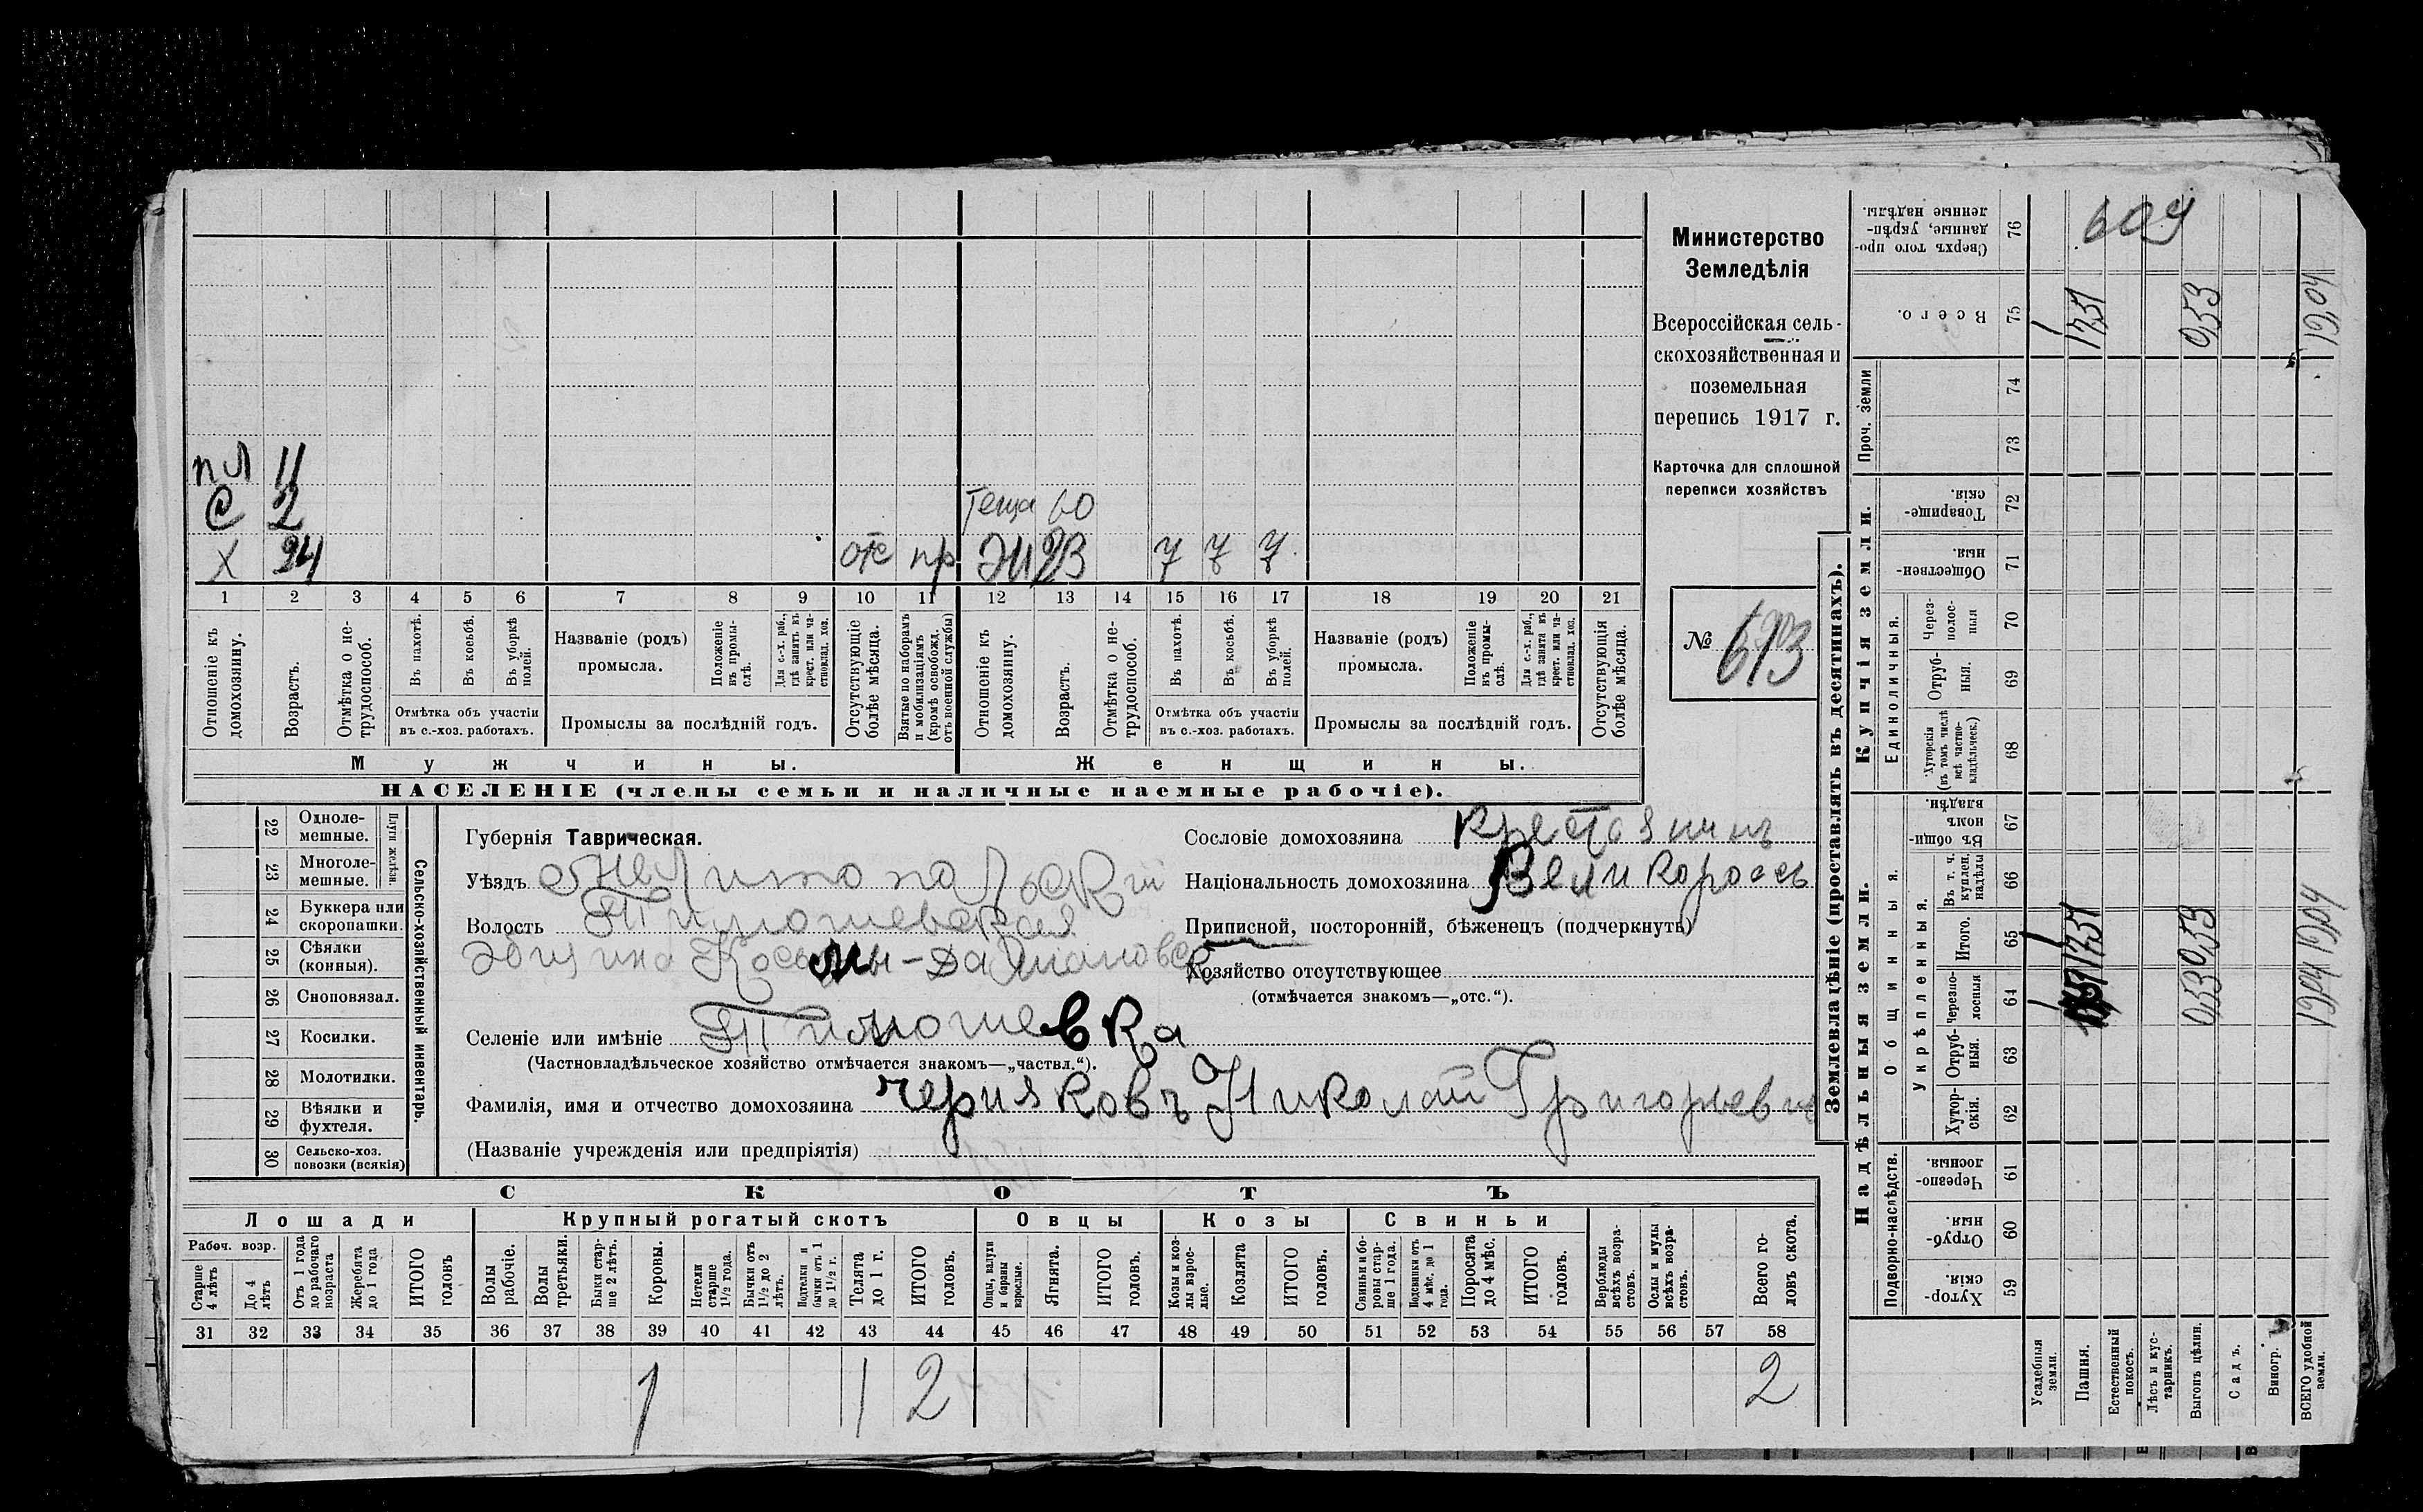 пл 11
С 2 теща 60
Х 24 отс пр Ж 23 7 7 7
1 2 3 4 5 6 7 8 9 10 11 12 13 14 15 16 17 18 19 20 21
Отношеніе къ домохозяину.
Возрастъ.
Отмѣтка о не-
трудоспособ.
Въ пахотѣ.
Въ косьбѣ.
Въ уборкѣ
полей.
Отмѣтка объ участіи
въ с.-хоз. работахъ.
Названіе (родъ)
промысла.
Положеніе
въ промы-
слѣ.
Для с.-х. раб.,
гдѣ занятъ въ
крест. или ча-
стновлад. хоз.
Промыслы за послѣдній годъ.
Отсутствующіе
болѣе мѣсяца.
Взятые по наборамъ
и мобилизаціямъ
(кромѣ освобожд.
отъ военной службы)
Отношеніе къ
домохозяину.
Возрастъ.
Отмѣтка о не-
трудоспособ.
Въ пахотѣ.
Въ косьбѣ.
Въ уборкѣ
полей.
Отмѣтка объ участіи
въ с.-хоз. работахъ.
Названіе (родъ)
промысла.
Положеніе
въ промы-
слѣ.
Для с.-х. раб.,
гдѣ занята въ
крест. или ча-
стновлад. хоз.
Промыслы за послѣдній годъ.
Отсутствующія
болѣе мѣсяца.
Мужчины. Женщины.
НАСЕЛЕНІЕ (члены семьи и наличные наемные рабочіе).
Министерство
Земледѣлія
Всероссійская сель-
скохозяйственная и
поземельная
перепись 1917 г.
Карточка для сплошной
переписи хозяйствъ
№ 613
22 Одноле-
мешные.
23 Многоле-
мешные.
Плуги желѣзн.
24 Буккера или
скоропашки.
25 Сѣялки
(конныя).
26 Сноповязал.
27 Косилки.
28 Молотилки.
29 Вѣялки и
фухтеля.
30 Сельско-хоз.
повозки (всякія)
Сельско-хозяйственный инвентарь.
Губернія Таврическая.
Уѣздъ Мелитопольскій
Волость Тимошевская
Община Косьмы-Дамиановск
Селеніе или имѣніе Тимошевка
(Частновладѣльческое хозяйство отмѣчается знакомъ—„частвл.“).
Фамилія, имя и отчество домохозяина Черняковъ Николай Григорьевич
(Названіе учрежденія или предпріятія)
Сословіе домохозяина крестьянинъ
Національность домохозяина Великороссъ
Приписной, посторонній, бѣженецъ (подчеркнуть)
Хозяйство отсутствующее
(отмѣчается знакомъ—„отс.“).
СКОТЪ
Лошади Крупный рогатый скотъ Овцы Козы Свиньи
Рабоч. возр.
Старше
4 лѣтъ
До 4
лѣтъ
Отъ 1 года
до рабочаго
возраста
Жеребята
до 1 года
ИТОГО
головъ
Волы
рабочіе.
Волы
третьяки.
Быки стар-
ше 2 лѣтъ.
Коровы.
Нетели
старше
1½ года.
Бычки отъ
1½ до 2
лѣтъ.
Подтелки и
бычки отъ 1
до 1½ г.
Телята
до 1 г.
ИТОГО
головъ.
Овцы, валухи
и бараны
взрослые.
Ягнята.
ИТОГО
головъ.
Козы и коз-
лы взрос-
лые.
Козлята
ИТОГО
головъ.
Свиньи и бо-
ровы стар-
ше 1 года.
Подсвинки отъ
4 мѣс. до 1
года.
Поросята
до 4 мѣс.
ИТОГО
головъ.
Верблюды
всѣхъ возра-
стовъ.
Ослы и мулы
всѣхъ возра-
стовъ.
Всего го-
ловъ скота.
31 32 33 34 35 36 37 38 39 40 41 42 43 44 45 46 47 48 49 50 51 52 53 54 55 56 57 58
1 1 2 2
Землевладѣніе (проставлять въ десятинахъ).
Надѣльныя земли. Купчія земли. Проч. земли
Подворно-наслѣдств. Общинныя. Единоличныя.
Укрѣпленныя.
59 Хутор-
скія.
60 Отруб-
ныя.
61 Черезпо-
лосныя.
62 Хутор-
скія.
63 Отруб-
ныя.
64 Черезпо-
лосныя
65 Итого.
66 Въ т. ч.
куплен.
надѣлы
67 Въ общи
номъ
владѣн.
68 Хуторскія
(въ томъ числѣ
всѣ частно-
владѣльческ.)
69 Отруб-
ныя.
70 Через-
полос-
ныя
71 Обществен-
ныя.
72 Товарище-
скія.
73
74
75 Всего.
76 Сверхъ того про-
данные, укрѣп-
ленные надѣлы.
Усадебныя
земли.
Пашня.
Естественный
покосъ.
Лѣсъ и кус-
тарникъ.
Выгонъ цѣлин.
Садъ.
Виногр.
ВСЕГО удобной
земли.
0,53 0,53 0,53
12,04 12,04 12,04